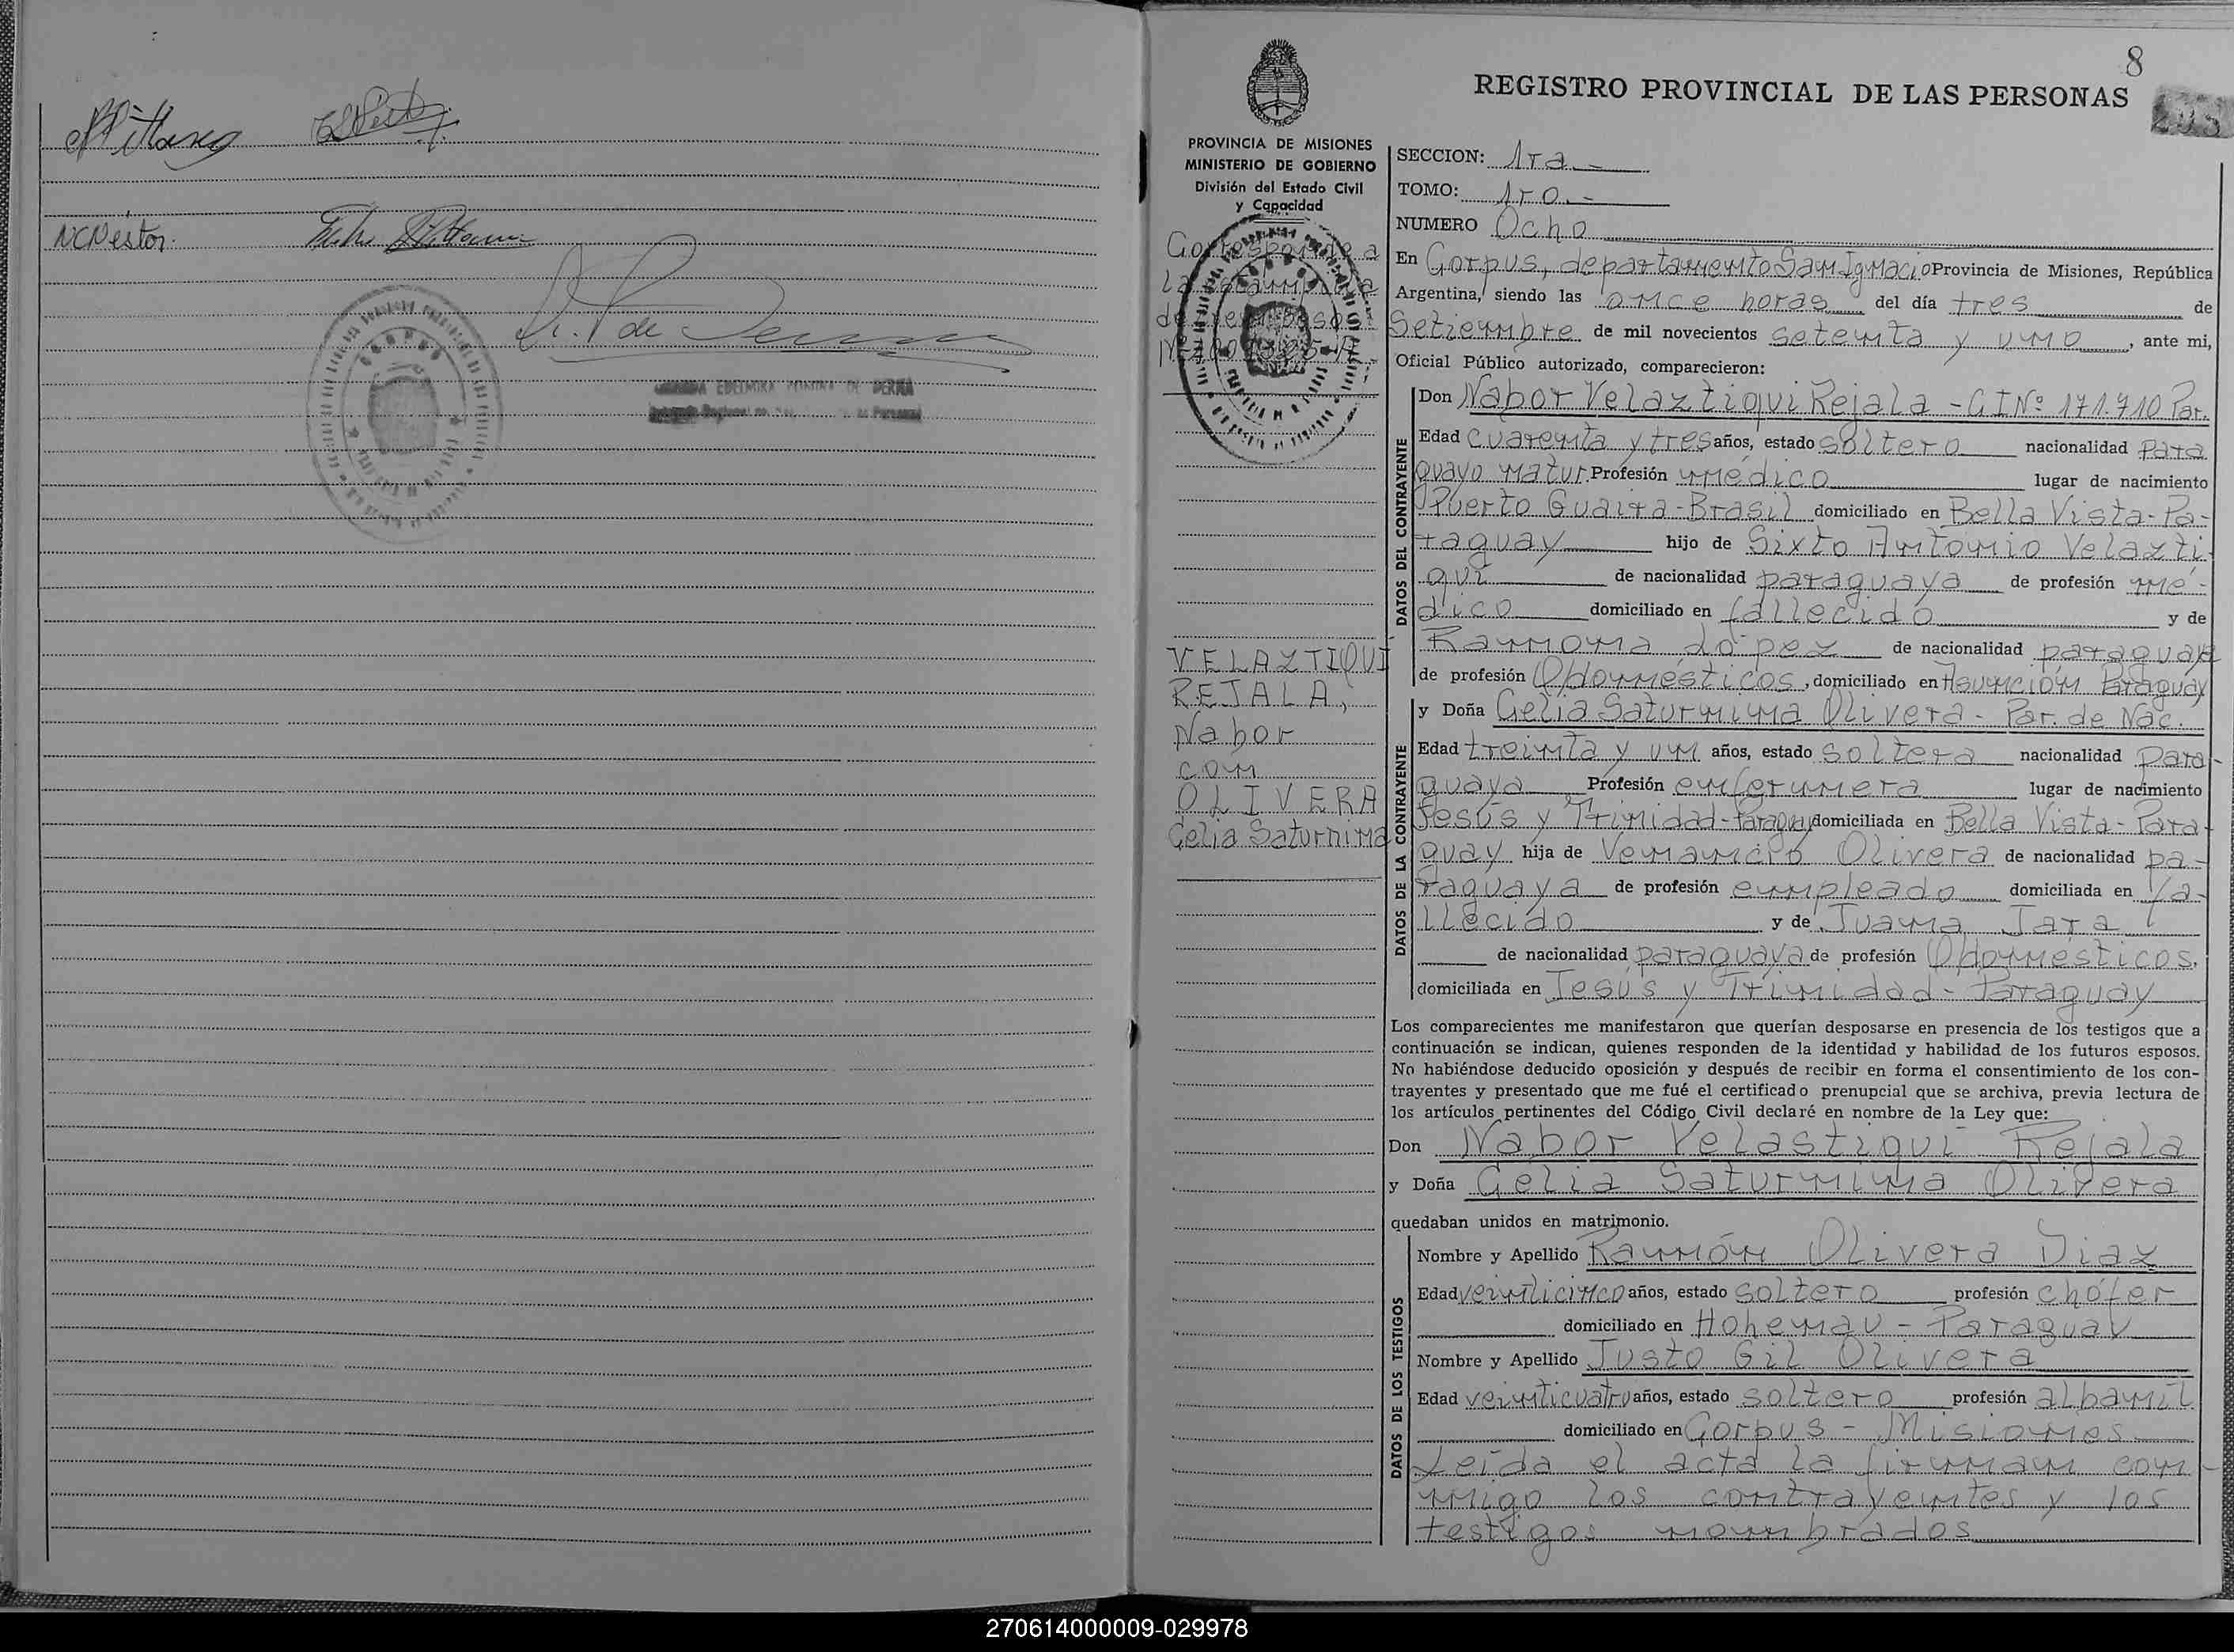 NCNéstor.
8
REGISTRO PROVINCIAL DE LAS PERSONAS
203
PROVINCIA DE MISIONES
MINISTERIO DE GOBIERNO
División del Estado Civil
y Capacidad
Corresponde a
la
de
SECCION: 1ra.-
TOMO: 1ro.-
NUMERO Ocho
En Corpus, departamento San Ignacio Provincia de Misiones, República
Argentina, siendo las once horas del día tres de
Setiembre de mil novecientos setenta y uno, ante mi,
Oficial Público autorizado, comparecieron:
DATOS DEL CONTRAYENTE
Don Nabor Velaztiqui Rejala - CI Nº 171.710 Par.
Edad cuarenta y tres años, estado soltero nacionalidad para
guayo natur. Profesión médico lugar de nacimiento
Puerto Guaira - Brasil domiciliado en Bella Vista - Pa-
raguay hijo de Sixto Antonio Velazti
qui de nacionalidad paraguaya de profesión mé-
dico domiciliado en fallecido y de
Ramona López de nacionalidad paraguaya
de profesión Q/domésticos, domiciliado en Asunción Paraguay
VELAZTIQUI
REJALA,
Nabor
con
OLIVERA
Celia Saturnina
DATOS DE LA CONTRAYENTE
y Doña Celia Saturnina Olivera - Par. de Nac.
Edad treinta y un años, estado soltera nacionalidad para-
guaya Profesión enfermera lugar de nacimiento
Jesús y Trinidad - Paraguay domiciliada en Bella Vista - Para-
guay hija de Venancio Olivera de nacionalidad pa-
raguaya de profesión empleado domiciliada en fa-
llecido y de Juana Jara
de nacionalidad paraguaya de profesión Q/domésticos,
domiciliada en Jesús y Trinidad - Paraguay
Los comparecientes me manifestaron que querían desposarse en presencia de los testigos que a
continuación se indican, quienes responden de la identidad y habilidad de los futuros esposos.
No habiéndose deducido oposición y después de recibir en forma el consentimiento de los con-
trayentes y presentado que me fué el certificado prenupcial que se archiva, previa lectura de
los artículos pertinentes del Código Civil declaré en nombre de la Ley que:
Don Nabor Velastiqui Rejala
y Doña Celia Saturnina Olivera
quedaban unidos en matrimonio.
DATOS DE LOS TESTIGOS
Nombre y Apellido Ramón Olivera Diaz
Edad veinticinco años, estado soltero profesión chófer
domiciliado en Hohenau - Paraguay
Nombre y Apellido Justo Gil Olivera
Edad veinticuatro años, estado soltero profesión albañil
domiciliado en Corpus - Misiones
Leída el acta la firman con-
migo los contrayentes y los
testigos nombrados
270614000009-029978